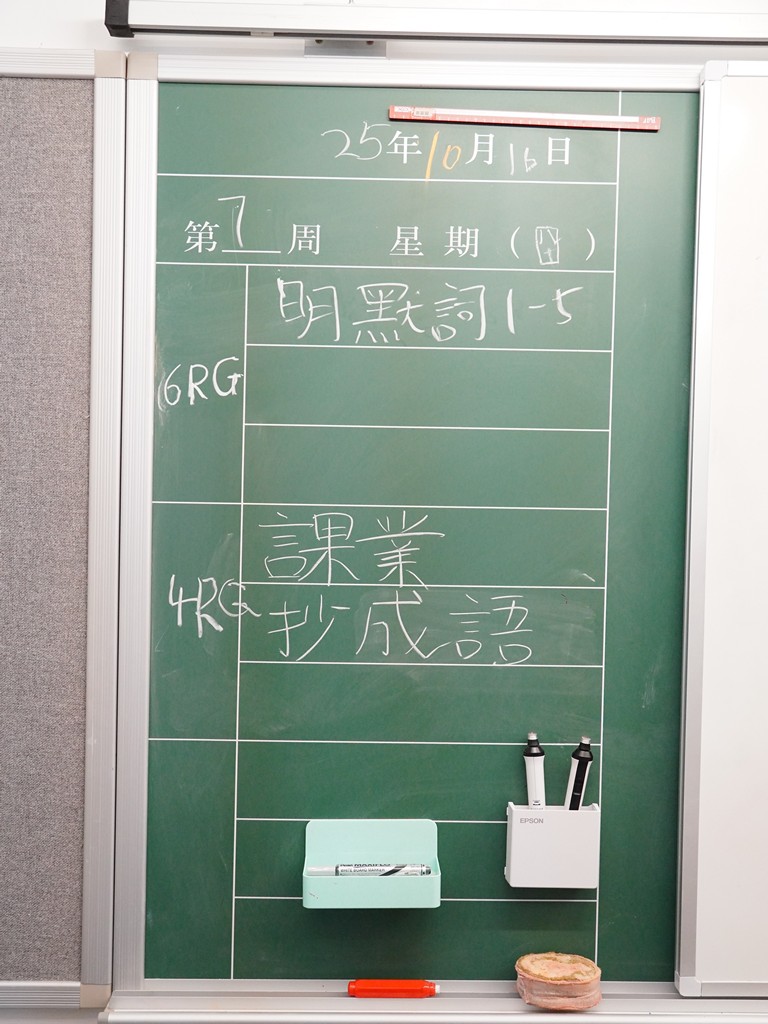 25年10月16日
第7周 星期（四）
明默詞1-5
6RG
課業
4RG 抄成語
EPSON
WHITE BOARD MARKER